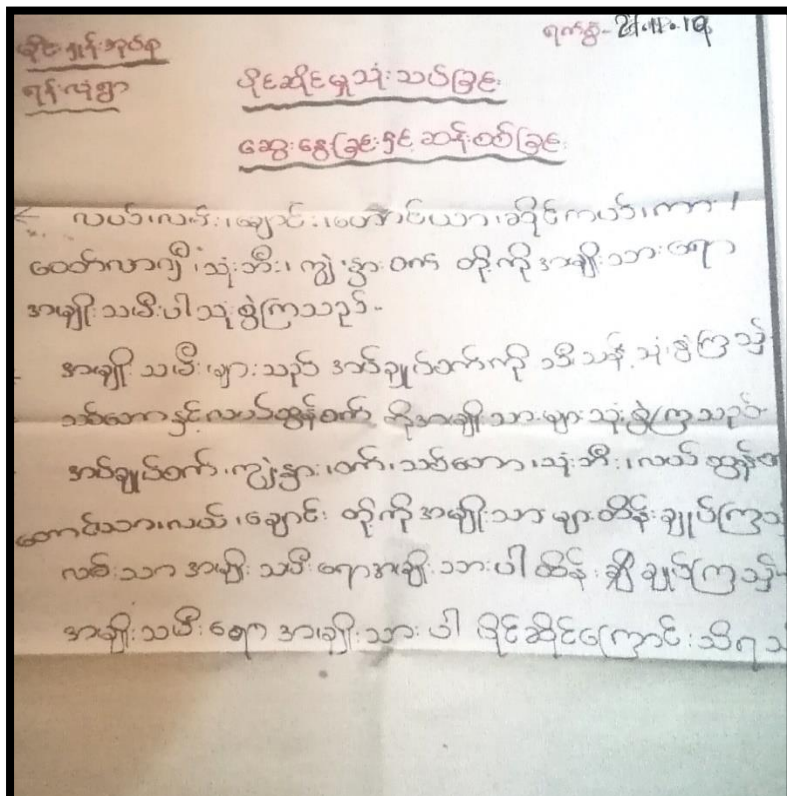 ရက်စွဲ- 21.11.19
မိုင်းရှူးအုပ်စု
ရန်လုံရွာ
ပိုင်ဆိုင်မှုသုံးသပ်ခြင်း
ဆွေးနွေးခြင်းနှင့် ဆန်းစစ်ခြင်း
လယ်၊လမ်း၊ချောင်း၊တောင်ယာ၊ဆိုင်ကယ်၊ကား၊
ထော်လာဂျီ၊သုံးဘီး၊ ကျွဲ၊နွား၊ဝက် တို့ကိုအမျိုးသားရော
အမျိုးသမီးပါသုံးစွဲကြသည်-
အမျိုးသမီးများသည် အပ်ချုပ်စက်ကို သီးသန့်သုံးစွဲကြသည်
သစ်တောနှင့်လယ်ထွန်စက် ကိုအမျိုးသားများသုံးစွဲကြသည်-
အပ်ချုပ်စက်၊ကျွဲ၊နွား၊ဝက်၊သစ်တော၊သုံးဘီး၊လယ်ထွန်
တောင်ယာ၊လယ်၊ချောင်း တို့ကိုအမျိုးသားများထိန်းချုပ်ကြ
လမ်းသာ အမျိုးသမီးရောအမျိုးသားပါထိန်းချုပ်ကြသည်-
အမျိုးသမီးရော အမျိုးသားပါ ပိုင်ဆိုင်ကြောင်းသိရ